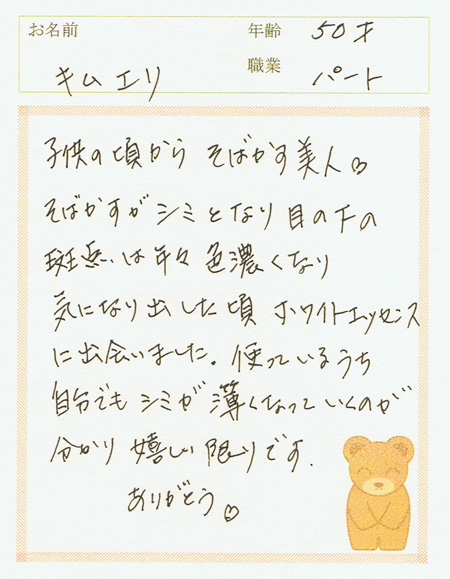 お名前
年齢 50才
職業 パート
キム エリ
子供の頃から そばかす美人♡
そばかすがシミとなり 目の下の
斑点は年々 色濃くなり
気になり出した頃 ホワイトエッセンス
に出会いました。使っているうち
自分でも シミが 薄くなっていくのが
分かり 嬉しい限りです.
ありがとう♡